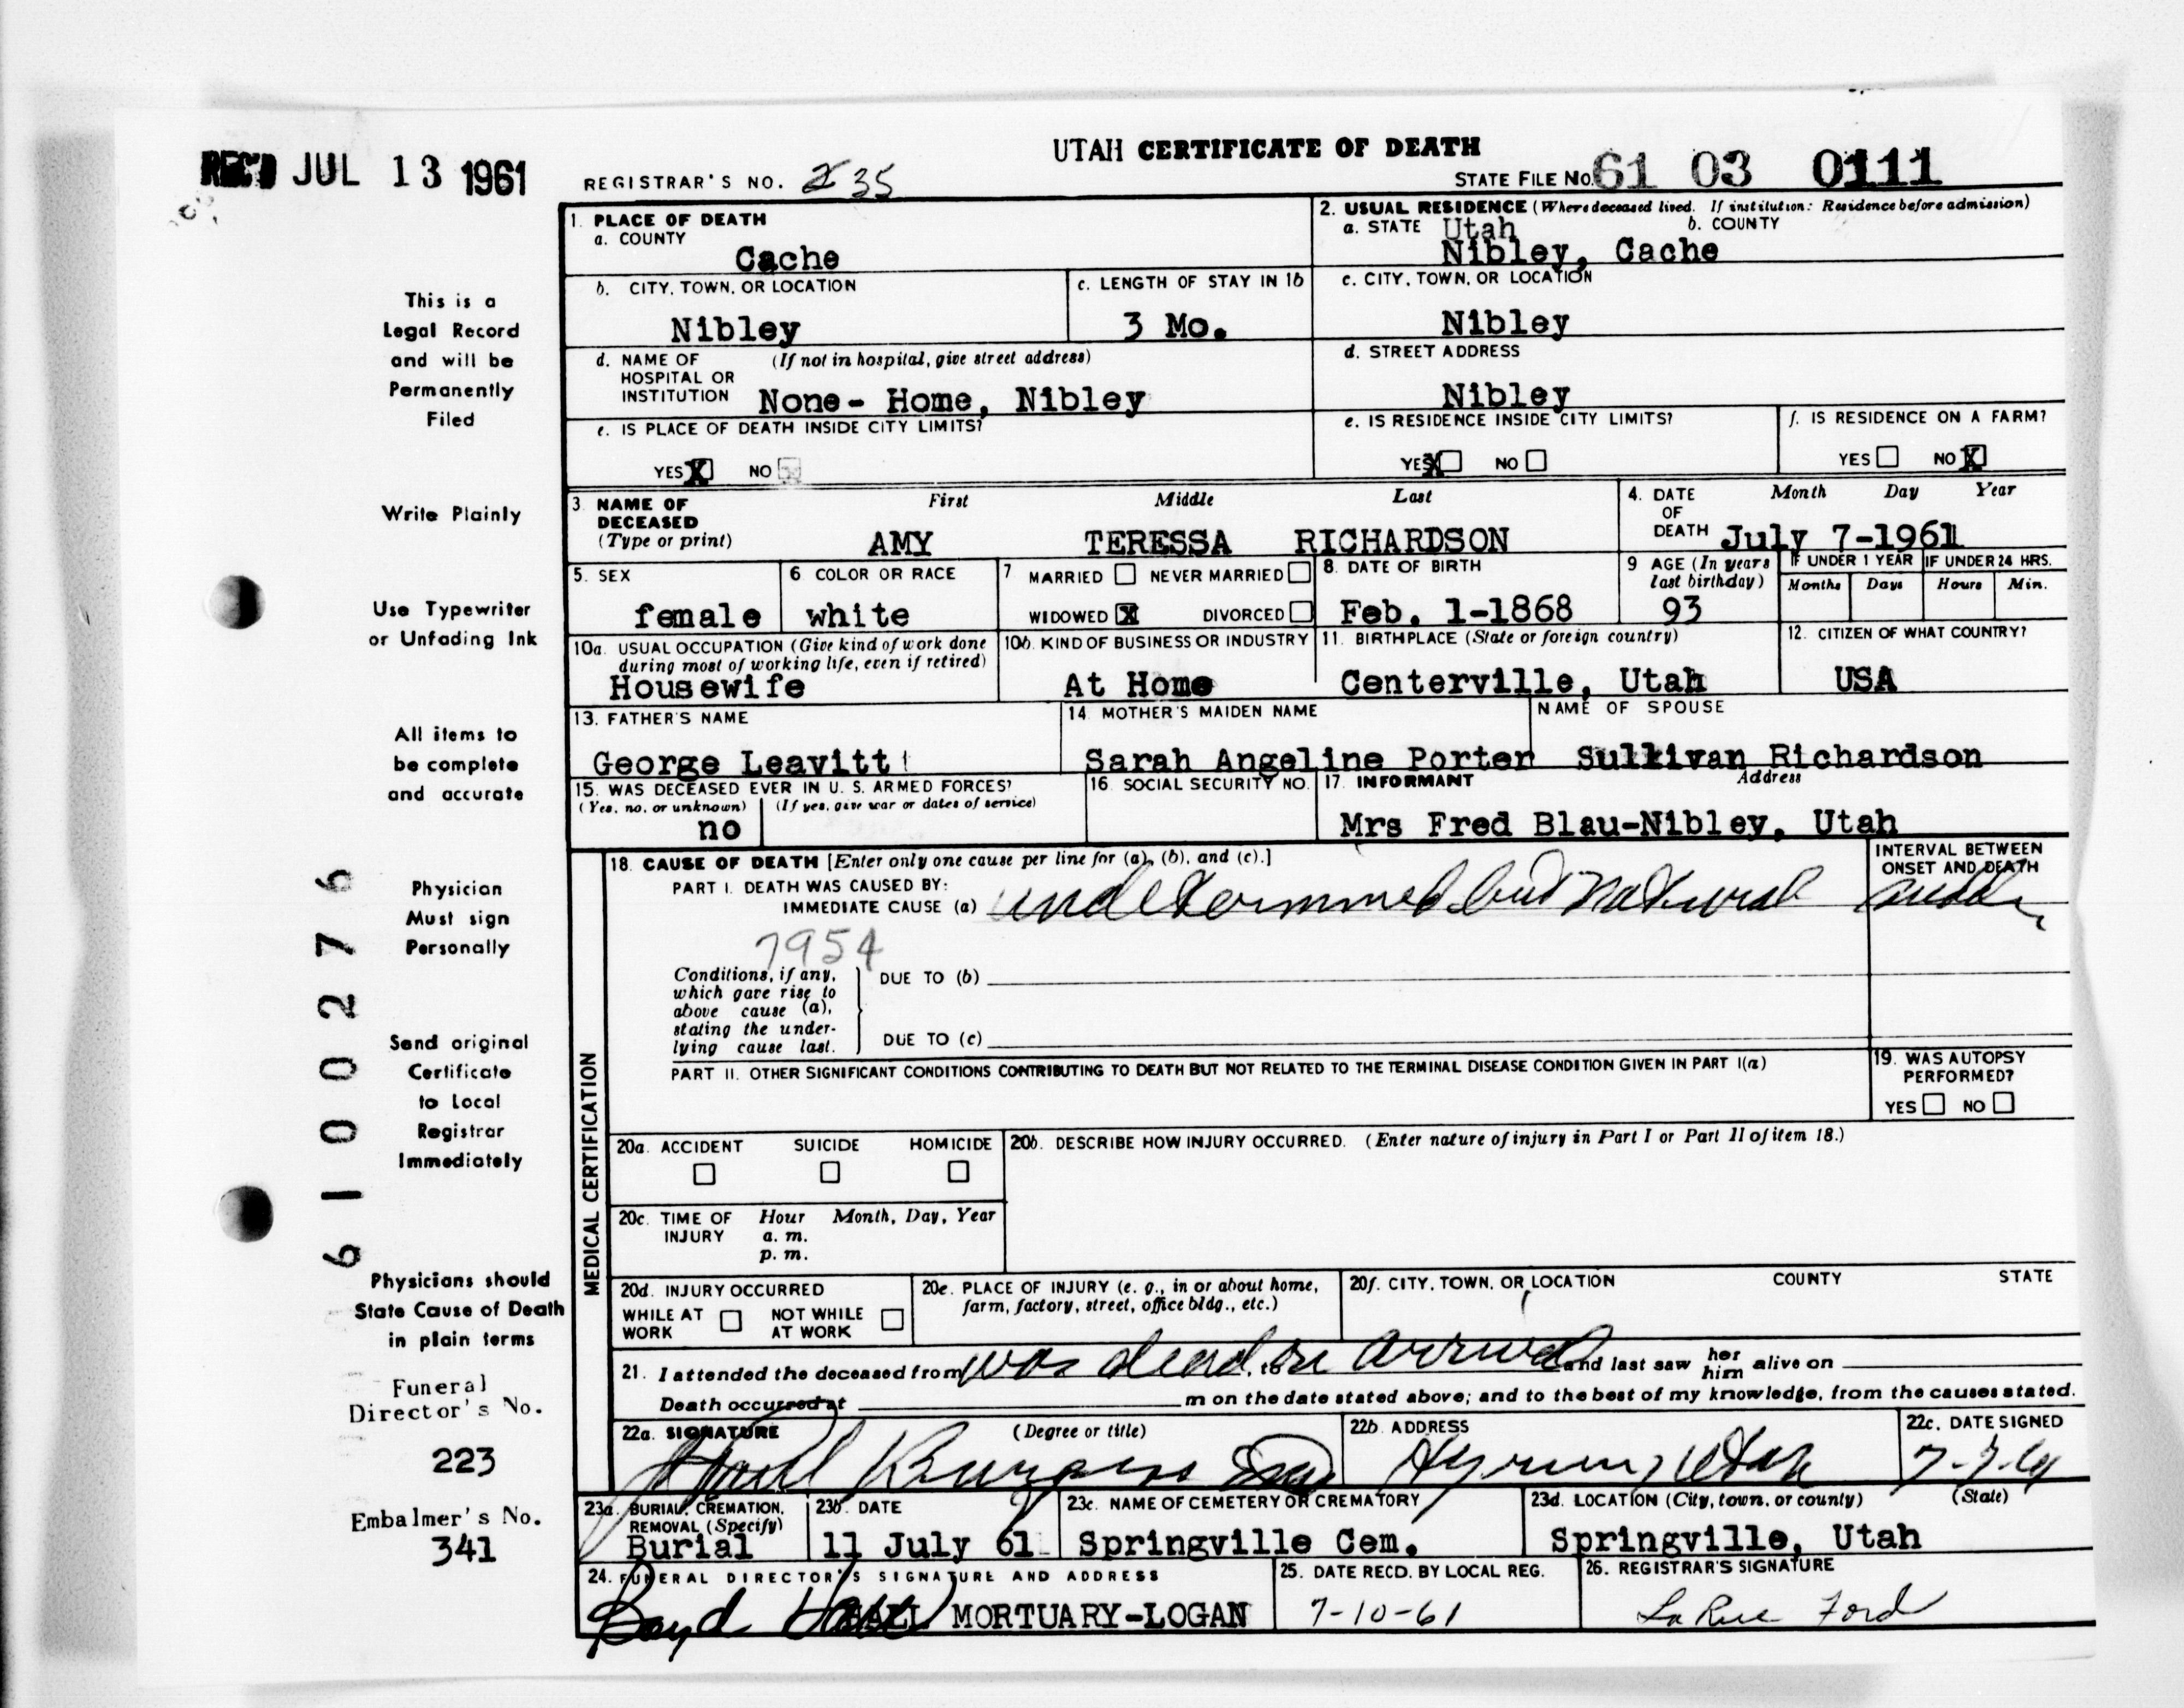 UTAH CERTIFICATE OF DEATH
REC'D JUL 13 1961
REGISTRAR'S NO. 235
STATE FILE No. 61 03 0111
1. PLACE OF DEATH
a. COUNTY
Cache
2. USUAL RESIDENCE (Where deceased lived. If institution: Residence before admission)
a. STATE Utah b. COUNTY
Nibley, Cache
b. CITY, TOWN, OR LOCATION
Nibley
c. LENGTH OF STAY IN 1b
3 Mo.
c. CITY, TOWN, OR LOCATION
Nibley
d. NAME OF (If not in hospital, give street address)
HOSPITAL OR
INSTITUTION None- Home, Nibley
d. STREET ADDRESS
Nibley
e. IS PLACE OF DEATH INSIDE CITY LIMITS?
YES X NO
e. IS RESIDENCE INSIDE CITY LIMITS?
YES X NO
f. IS RESIDENCE ON A FARM?
YES NO X
3. NAME OF DECEASED
(Type or print)
First Middle Last
AMY TERESSA RICHARDSON
4. DATE OF DEATH
Month Day Year
July 7-1961
5. SEX
female
6 COLOR OR RACE
white
7 MARRIED NEVER MARRIED
WIDOWED X DIVORCED
8. DATE OF BIRTH
Feb. 1-1868
9 AGE (In years last birthday)
93
IF UNDER 1 YEAR
Months Days
IF UNDER 24 HRS.
Hours Min.
10a. USUAL OCCUPATION (Give kind of work done
during most of working life, even if retired)
Housewife
10b. KIND OF BUSINESS OR INDUSTRY
At Home
11. BIRTHPLACE (State or foreign country)
Centerville, Utah
12. CITIZEN OF WHAT COUNTRY?
USA
13. FATHER'S NAME
George Leavitt
14. MOTHER'S MAIDEN NAME
Sarah Angeline Porter
NAME OF SPOUSE
Sullivan Richardson
15. WAS DECEASED EVER IN U. S. ARMED FORCES?
(Yes, no, or unknown) (If yes, give war or dates of service)
no
16. SOCIAL SECURITY NO.
17. INFORMANT Address
Mrs Fred Blau-Nibley, Utah
MEDICAL CERTIFICATION
18. CAUSE OF DEATH [Enter only one cause per line for (a), (b), and (c).]
PART I. DEATH WAS CAUSED BY:
IMMEDIATE CAUSE (a) undetermined but natural
INTERVAL BETWEEN
ONSET AND DEATH
sudden
7954
Conditions, if any,
which gave rise to
above cause (a),
stating the under-
lying cause last.
DUE TO (b)
DUE TO (c)
PART II. OTHER SIGNIFICANT CONDITIONS CONTRIBUTING TO DEATH BUT NOT RELATED TO THE TERMINAL DISEASE CONDITION GIVEN IN PART I(a)
19. WAS AUTOPSY
PERFORMED?
YES NO
20a. ACCIDENT SUICIDE HOMICIDE
20b. DESCRIBE HOW INJURY OCCURRED. (Enter nature of injury in Part I or Part II of item 18.)
20c. TIME OF INJURY
Hour Month, Day, Year
a. m.
p. m.
20d. INJURY OCCURRED
WHILE AT WORK NOT WHILE AT WORK
20e. PLACE OF INJURY (e. g., in or about home,
farm, factory, street, office bldg., etc.)
20f. CITY, TOWN, OR LOCATION COUNTY STATE
21. I attended the deceased from was dead on arrival and last saw her him alive on
Death occurred at m on the date stated above; and to the best of my knowledge, from the causes stated.
22a. SIGNATURE (Degree or title)
Burgess
22b. ADDRESS
Hyrum, Utah
22c. DATE SIGNED
7-7-61
23a. BURIAL, CREMATION,
REMOVAL (Specify)
Burial
23b. DATE
11 July 61
23c. NAME OF CEMETERY OR CREMATORY
Springville Cem.
23d. LOCATION (City, town, or county) (State)
Springville, Utah
24. FUNERAL DIRECTOR'S SIGNATURE AND ADDRESS
Boyd Hall HALL MORTUARY-LOGAN
25. DATE RECD. BY LOCAL REG.
7-10-61
26. REGISTRAR'S SIGNATURE
La Rue Ford
This is a
Legal Record
and will be
Permanently
Filed
Write Plainly
Use Typewriter
or Unfading Ink
All items to
be complete
and accurate
Physician
Must sign
Personally
Send original
Certificate
to Local
Registrar
Immediately
Physicians should
State Cause of Death
in plain terms
Funeral
Director's No.
223
Embalmer's No.
341
61 00276